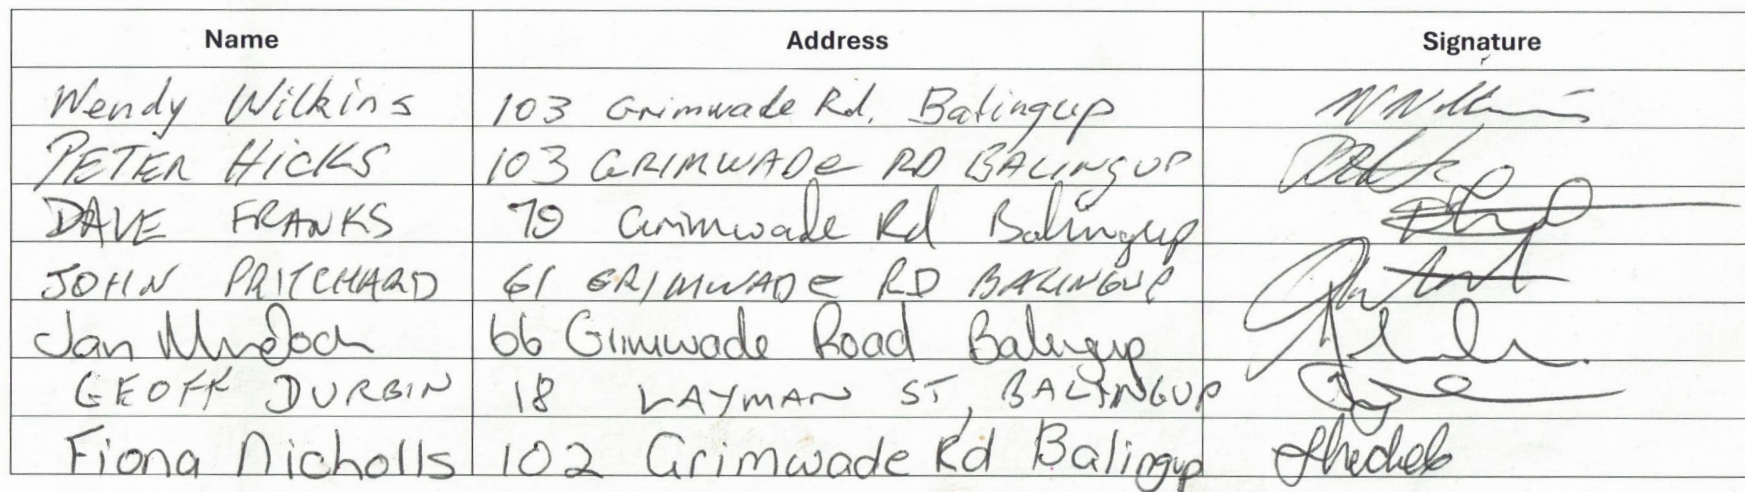 Name Address Signature
Wendy Wilkins 103 Grimwade Rd, Balingup
PETER HICKS 103 GRIMWADE RD BALINGUP
DAVE FRANKS 79 Grimwade Rd Balingup
JOHN PRITCHARD 61 GRIMWADE RD BALINGUP
Jan Murdoch 66 Grimwade Road Balingup
GEOFF DURBIN 18 LAYMAN ST, BALINGUP
Fiona Nicholls 102 Grimwade Rd Balingup